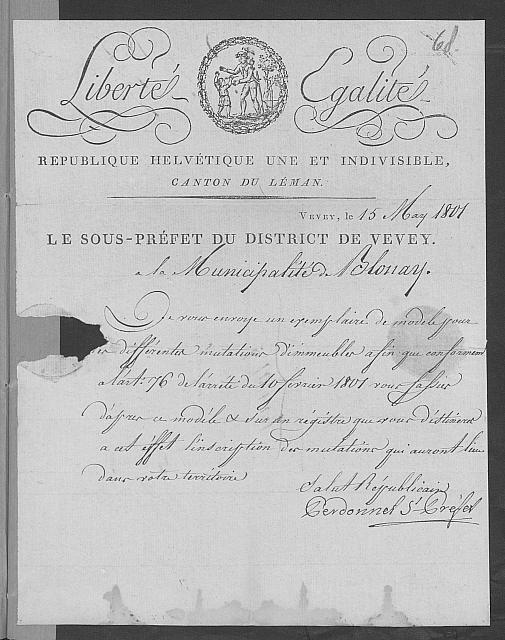 6d.
Liberté Egalité
REPUBLIQUE HELVÉTIQUE UNE ET INDIVISIBLE,
CANTON DU LÉMAN.
VEVEY, le 15 May 1801
LE SOUS-PRÉFET DU DISTRICT DE VEVEY.
a la Municipalité de Blonay.
Je vous envoye un exemplaire de modele pour
les différentes mutations d'immeubles afin que conformem
a l'art: 76 de l'arrêté du 10 février 1801 vous fassiés
d'après ce modèle & sur un régistre que vous déstinerés
a cet éffet l'inscription des mutations qui auront lieu
dans votre territoire
Salut Républicain
Perdonnet Ss-Préfet